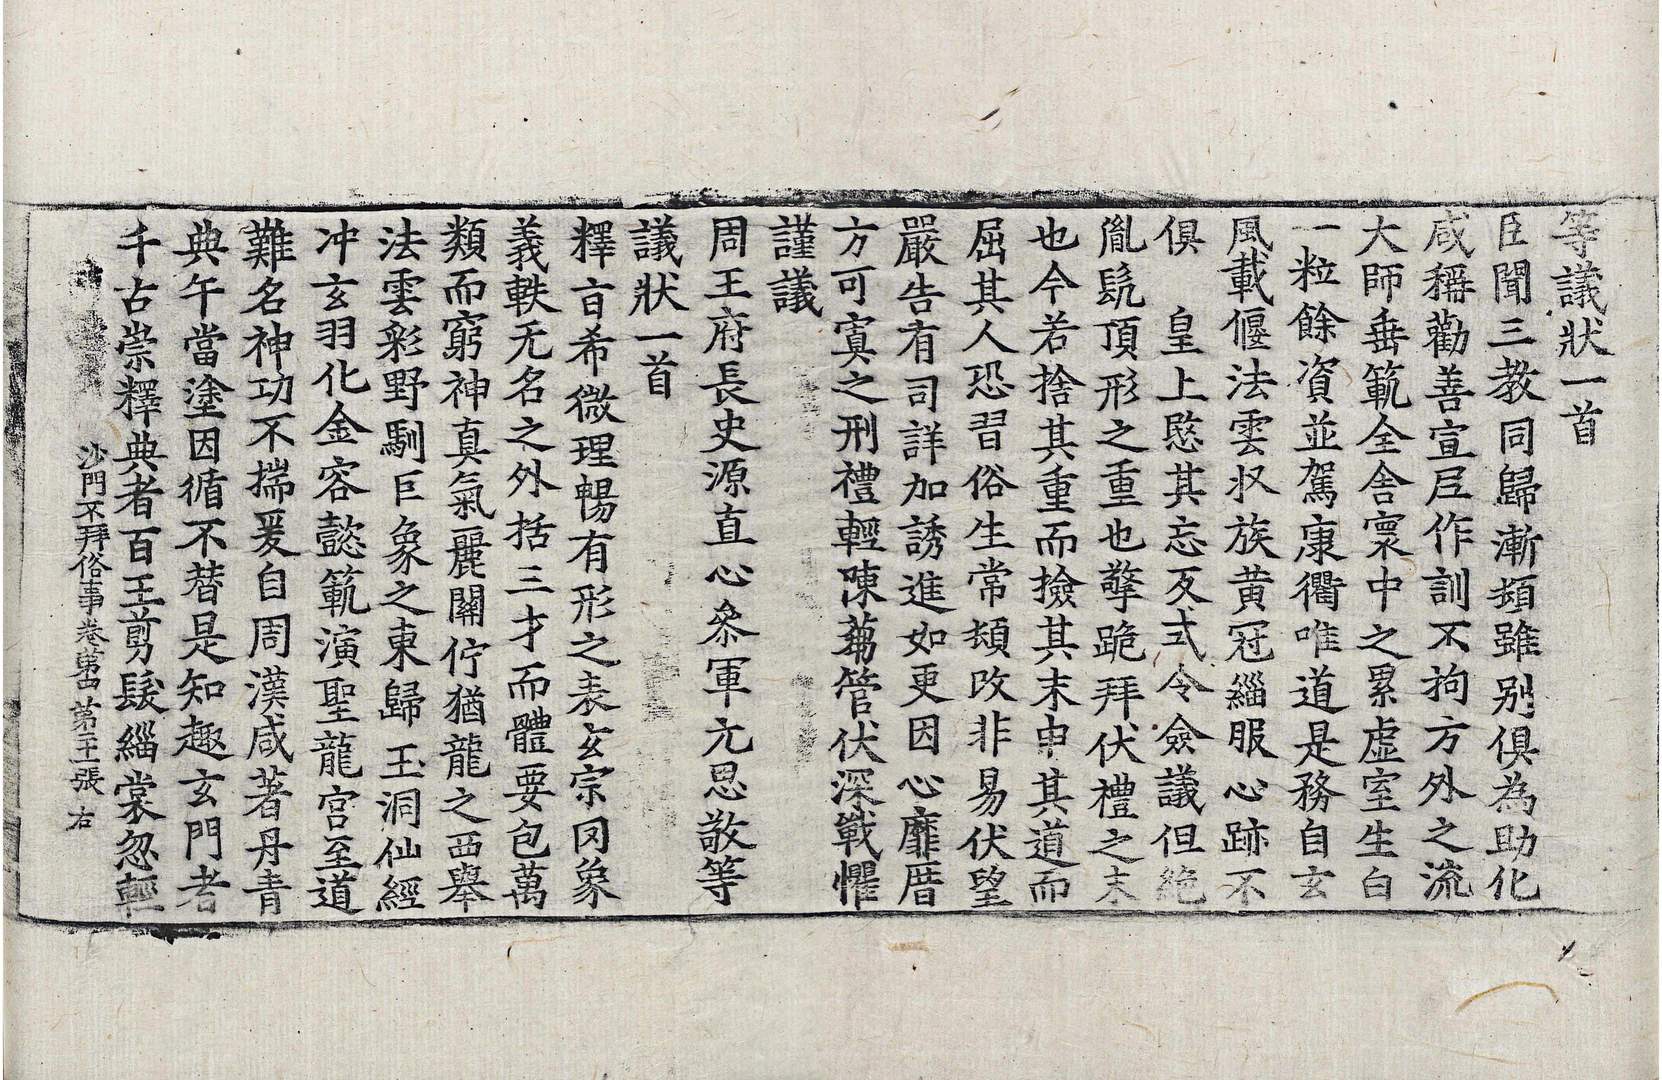 等議狀一首
臣聞三教同歸漸頻雖别俱為助化
咸稱勸善宣尼作訓不拘方外之流
大師垂範全舎寰中之累虛室生白
一粒餘資並駕康衢唯道是務自玄
風載偃法雲㳄族黄冠緇服心跡不
俱　皇上愍其忘反式令僉議但絶
胤髠頂形之重也擎跪拜伏禮之末
也今若捨其重而撿其末申其道而
屈其人恐習俗生常頻改非易伏望
嚴告有司詳加誘進如更因心靡厝
方可寘之刑禮輕陳蒭管伏深戰懼
謹議
周王府長史源直心叅軍元思敬等
議狀一首
釋㫖希微理暢有形之表玄宗罔象
義軼无名之外括三才而體要包萬
類而窮神真氣麗關佇猶龍之西舉
法雲彩野馴巨象之東歸玉洞仙經
冲玄羽化金容懿範演聖龍宫至道
難名神功不揣爰自周漢咸著丹青
典午當塗因循不替是知趣玄門者
千古崇釋典者百王剪髮緇裳忽輕
沙門不拜俗事卷第四 第三張 右